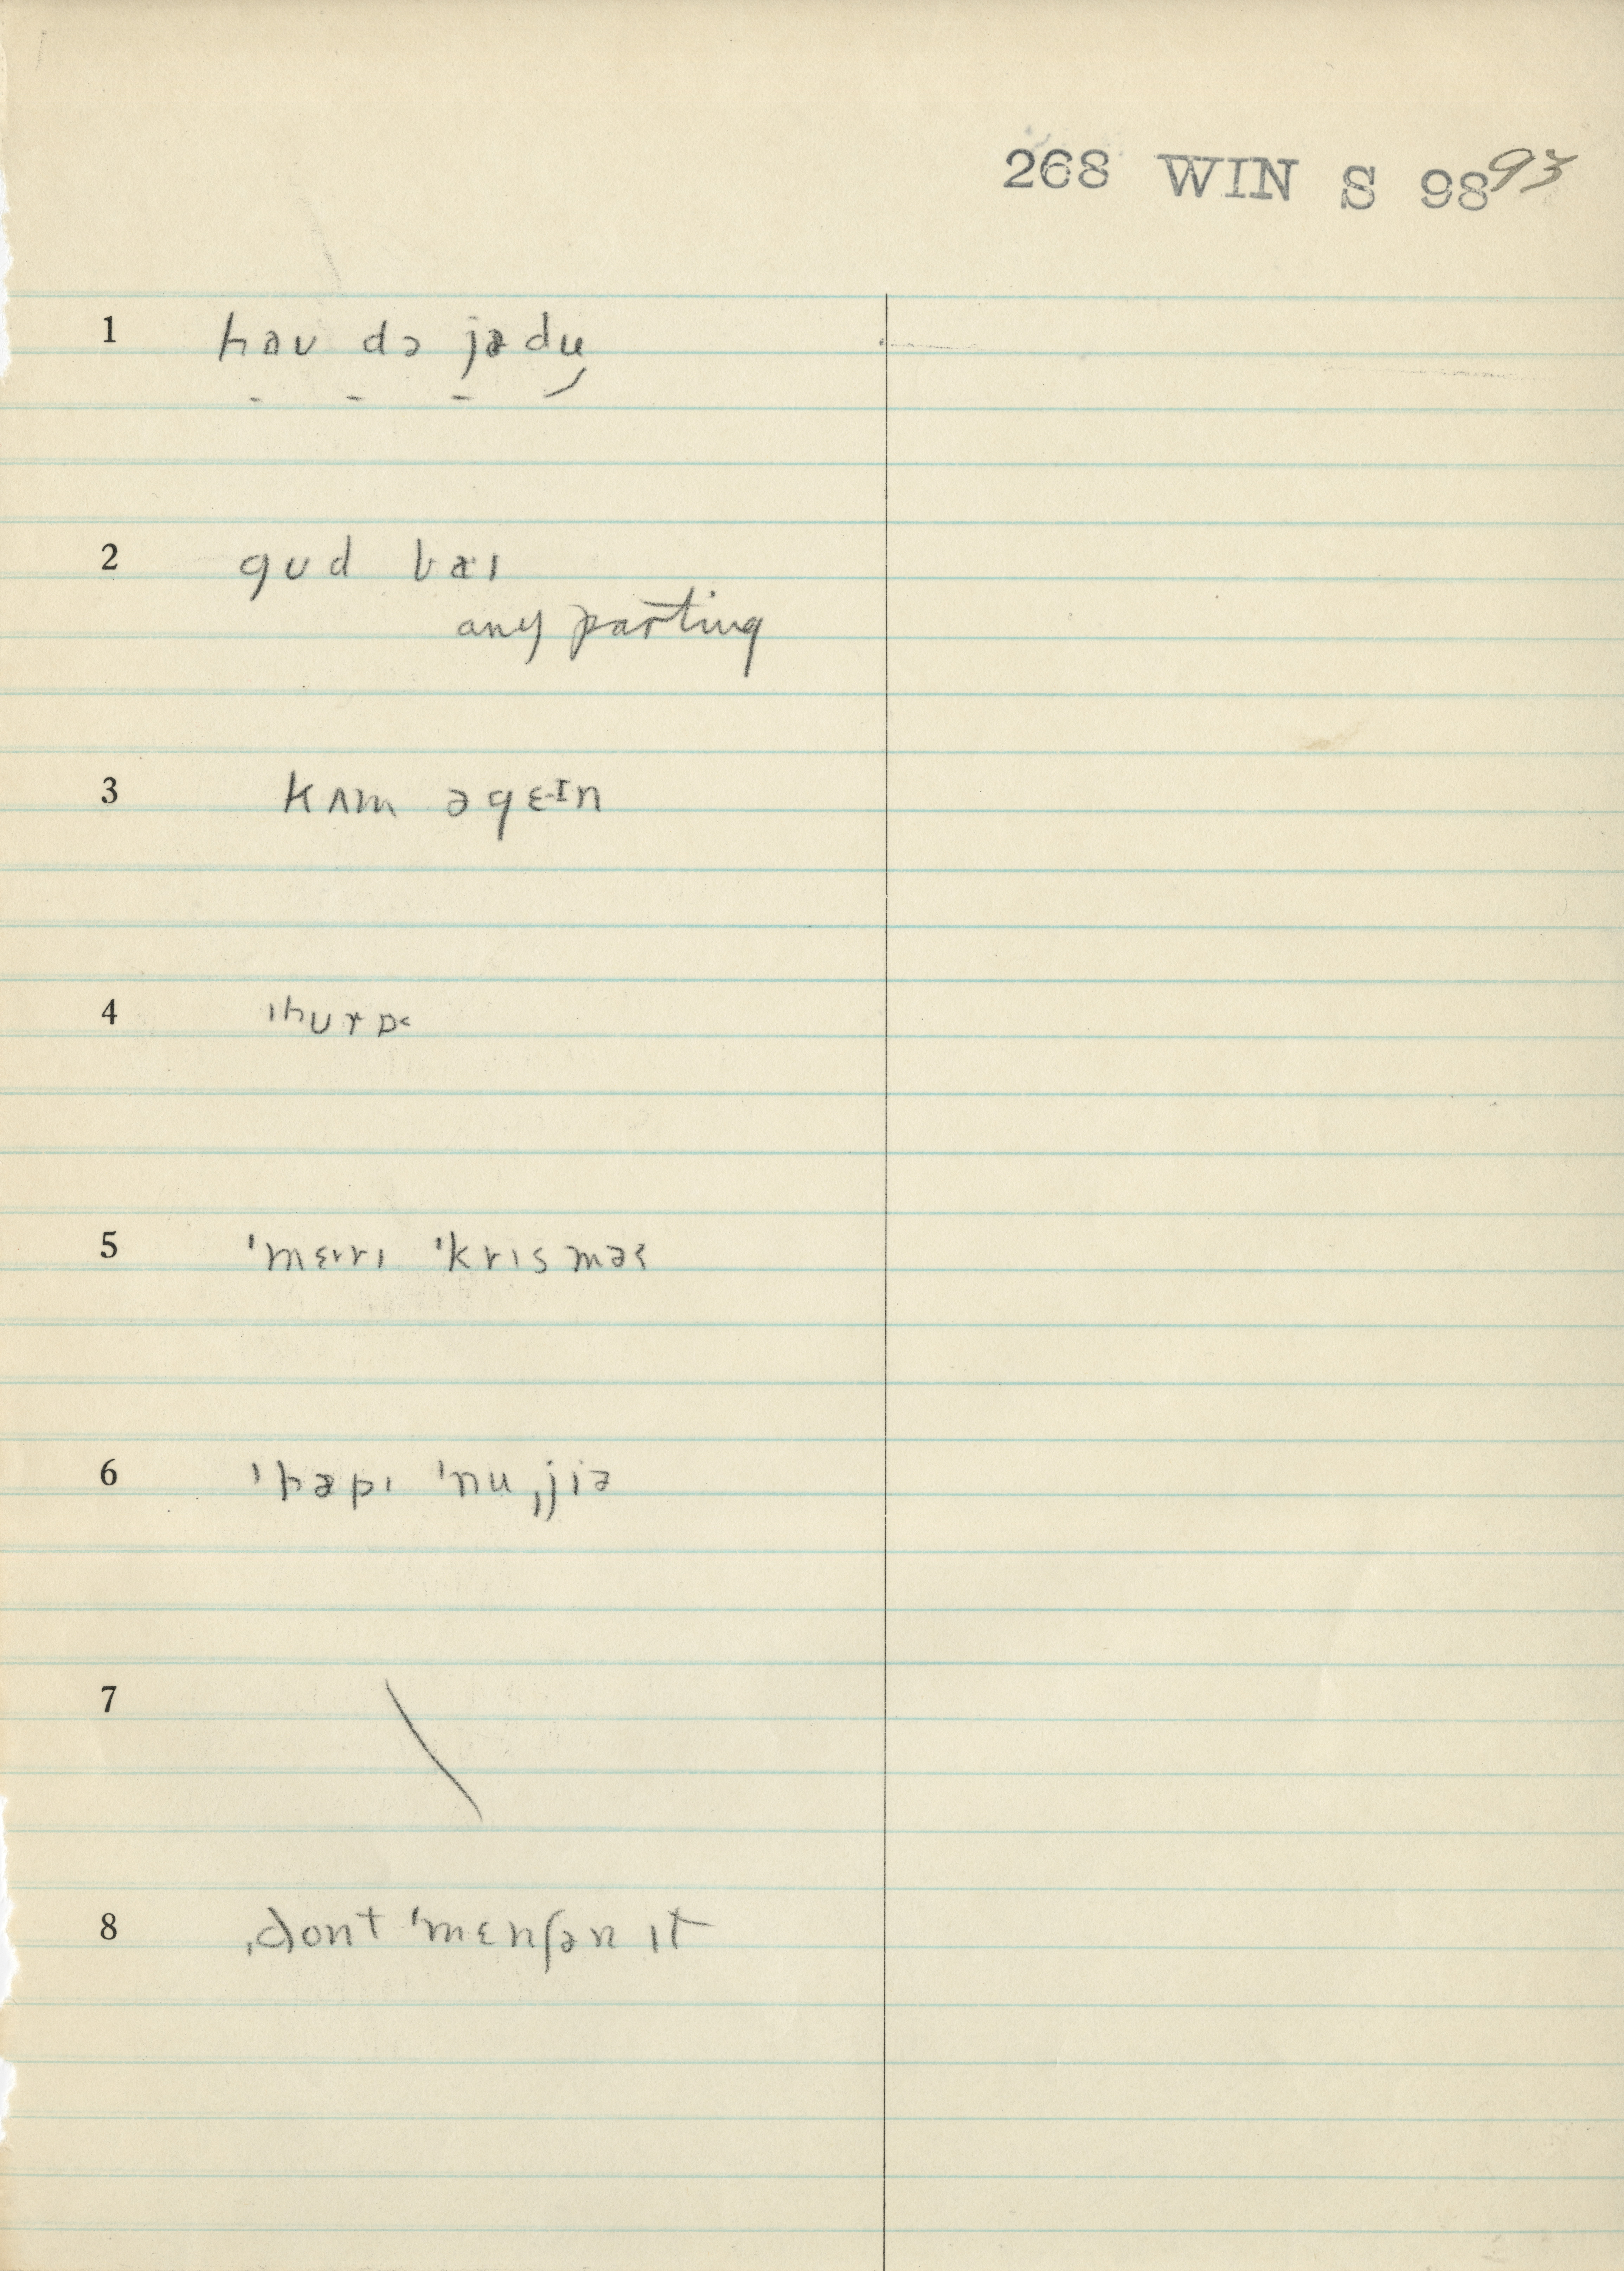 268 WIN S 98 93
1 haʊ də jədu
2 gʊd baɪ
any parting
3 kʌm əgɛɪn
4 ˈhʊrɒ<
5 ˈmɛrɪ ˈkrɪsməs
6 ˈhæpɪ ˈnuˌjiə
7
8 ˌdont ˈmɛnʃən ɪt